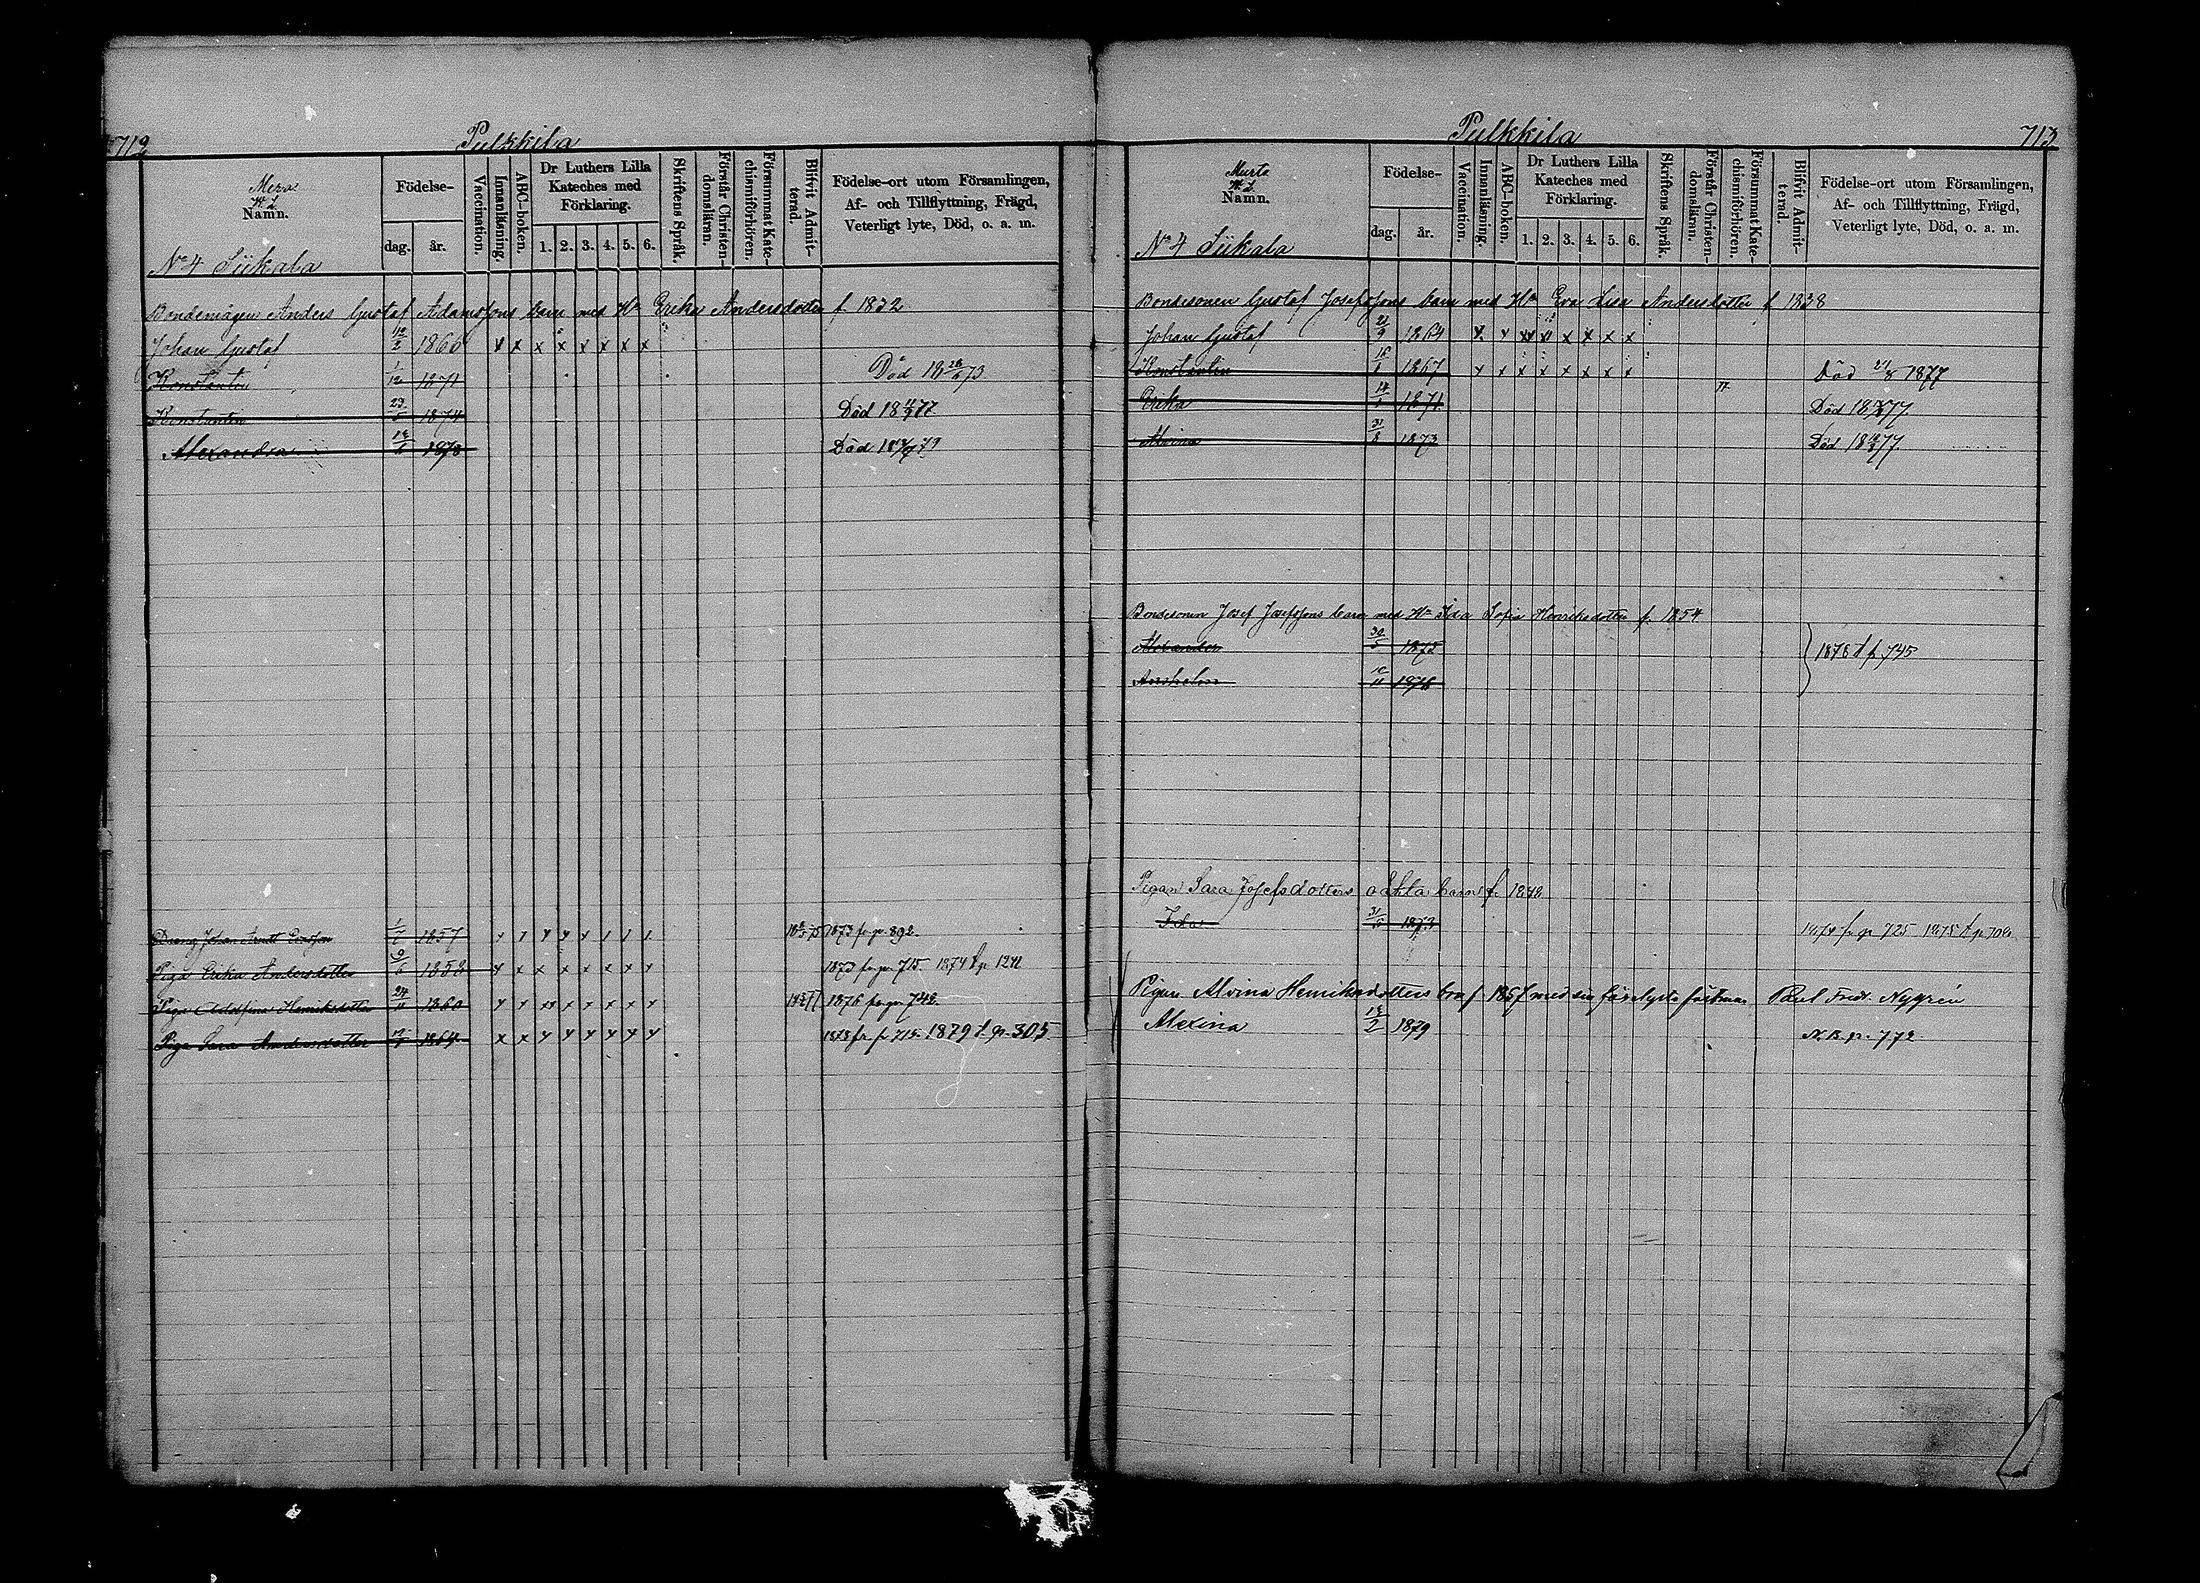 712
Pulkkila
Mera
N. L.
Namn.
Födelse-
dag. år.
Vaccination.
Innanläsning.
ABC-boken.
Dr Luthers Lilla
Kateches med
Förklaring.
1. 2. 3. 4. 5. 6.
Skriftens Språk.
Förstår Christen-
domsläran.
Försummat Kate-
chismiförhören.
Blifvit Admit-
terad.
Födelse-ort utom Församlingen,
Af- och Tillflyttning, Frägd,
Veterligt lyte, Död, o. a. m.
No 4 Siikala
Bondemågen Anders Gustaf Adamssons barn med Hu Erika Andersdotter f. 1832
Johan Gustaf 1860 x x x x x x x x
Konstantin 1/12 1871 Död
Konstantin 1874 Död
Alexandra 1878 Död
Dräng Johan 1857 1873 fr. p. 892.
Piga Erika Andersdotter 9/6 1858 x x x x x x x x 1873 fr. p. 715. 1874 t. p.
Piga Adolfina Henriksdotter 24/11 1860 1876 fr. p. 742.
Piga Sara Andersdotter 1864 x x x x x x x x 1878 fr. p. 715. 1879 t. p. 305
713
Pulkkila
Murto
N. L.
Namn.
Födelse-
dag. år.
Vaccination.
Innanläsning.
ABC-boken.
Dr Luthers Lilla
Kateches med
Förklaring.
1. 2. 3. 4. 5. 6.
Skriftens Språk.
Förstår Christen-
domsläran.
Försummat Kate-
chismiförhören.
Blifvit Admit-
terad.
Födelse-ort utom Församlingen,
Af- och Tillflyttning, Frägd,
Veterligt lyte, Död, o. a. m.
No 4 Siikala
Bondesonen Gustaf Josefssons barn med Hu Eva Lisa Andersdotter f. 1838
Johan Gustaf 21/9 1864
Konstantin 1867 x x x x x x x x Död 21/8 1877
Erika 1871 Död
Alvina 31/8 1873 Död
Bondesonen Josef Josefssons barn med Hu Ida Sofia Henriksdotter f. 1854
Alexander 30/5 1875 1878 t. p. 745
Anshelm 10/11 1876
Pigan Sara Josefsdotters oäkta barn f.
Ida 31/5 1873 1874 fr. p. 725 1875 t. p. 702
Pigan Alvina Henriksdotters barn f. 1857 med sin förelyste fästman Paul Fredr. Nygrén
Alexina 1879 N. B. p. 772.